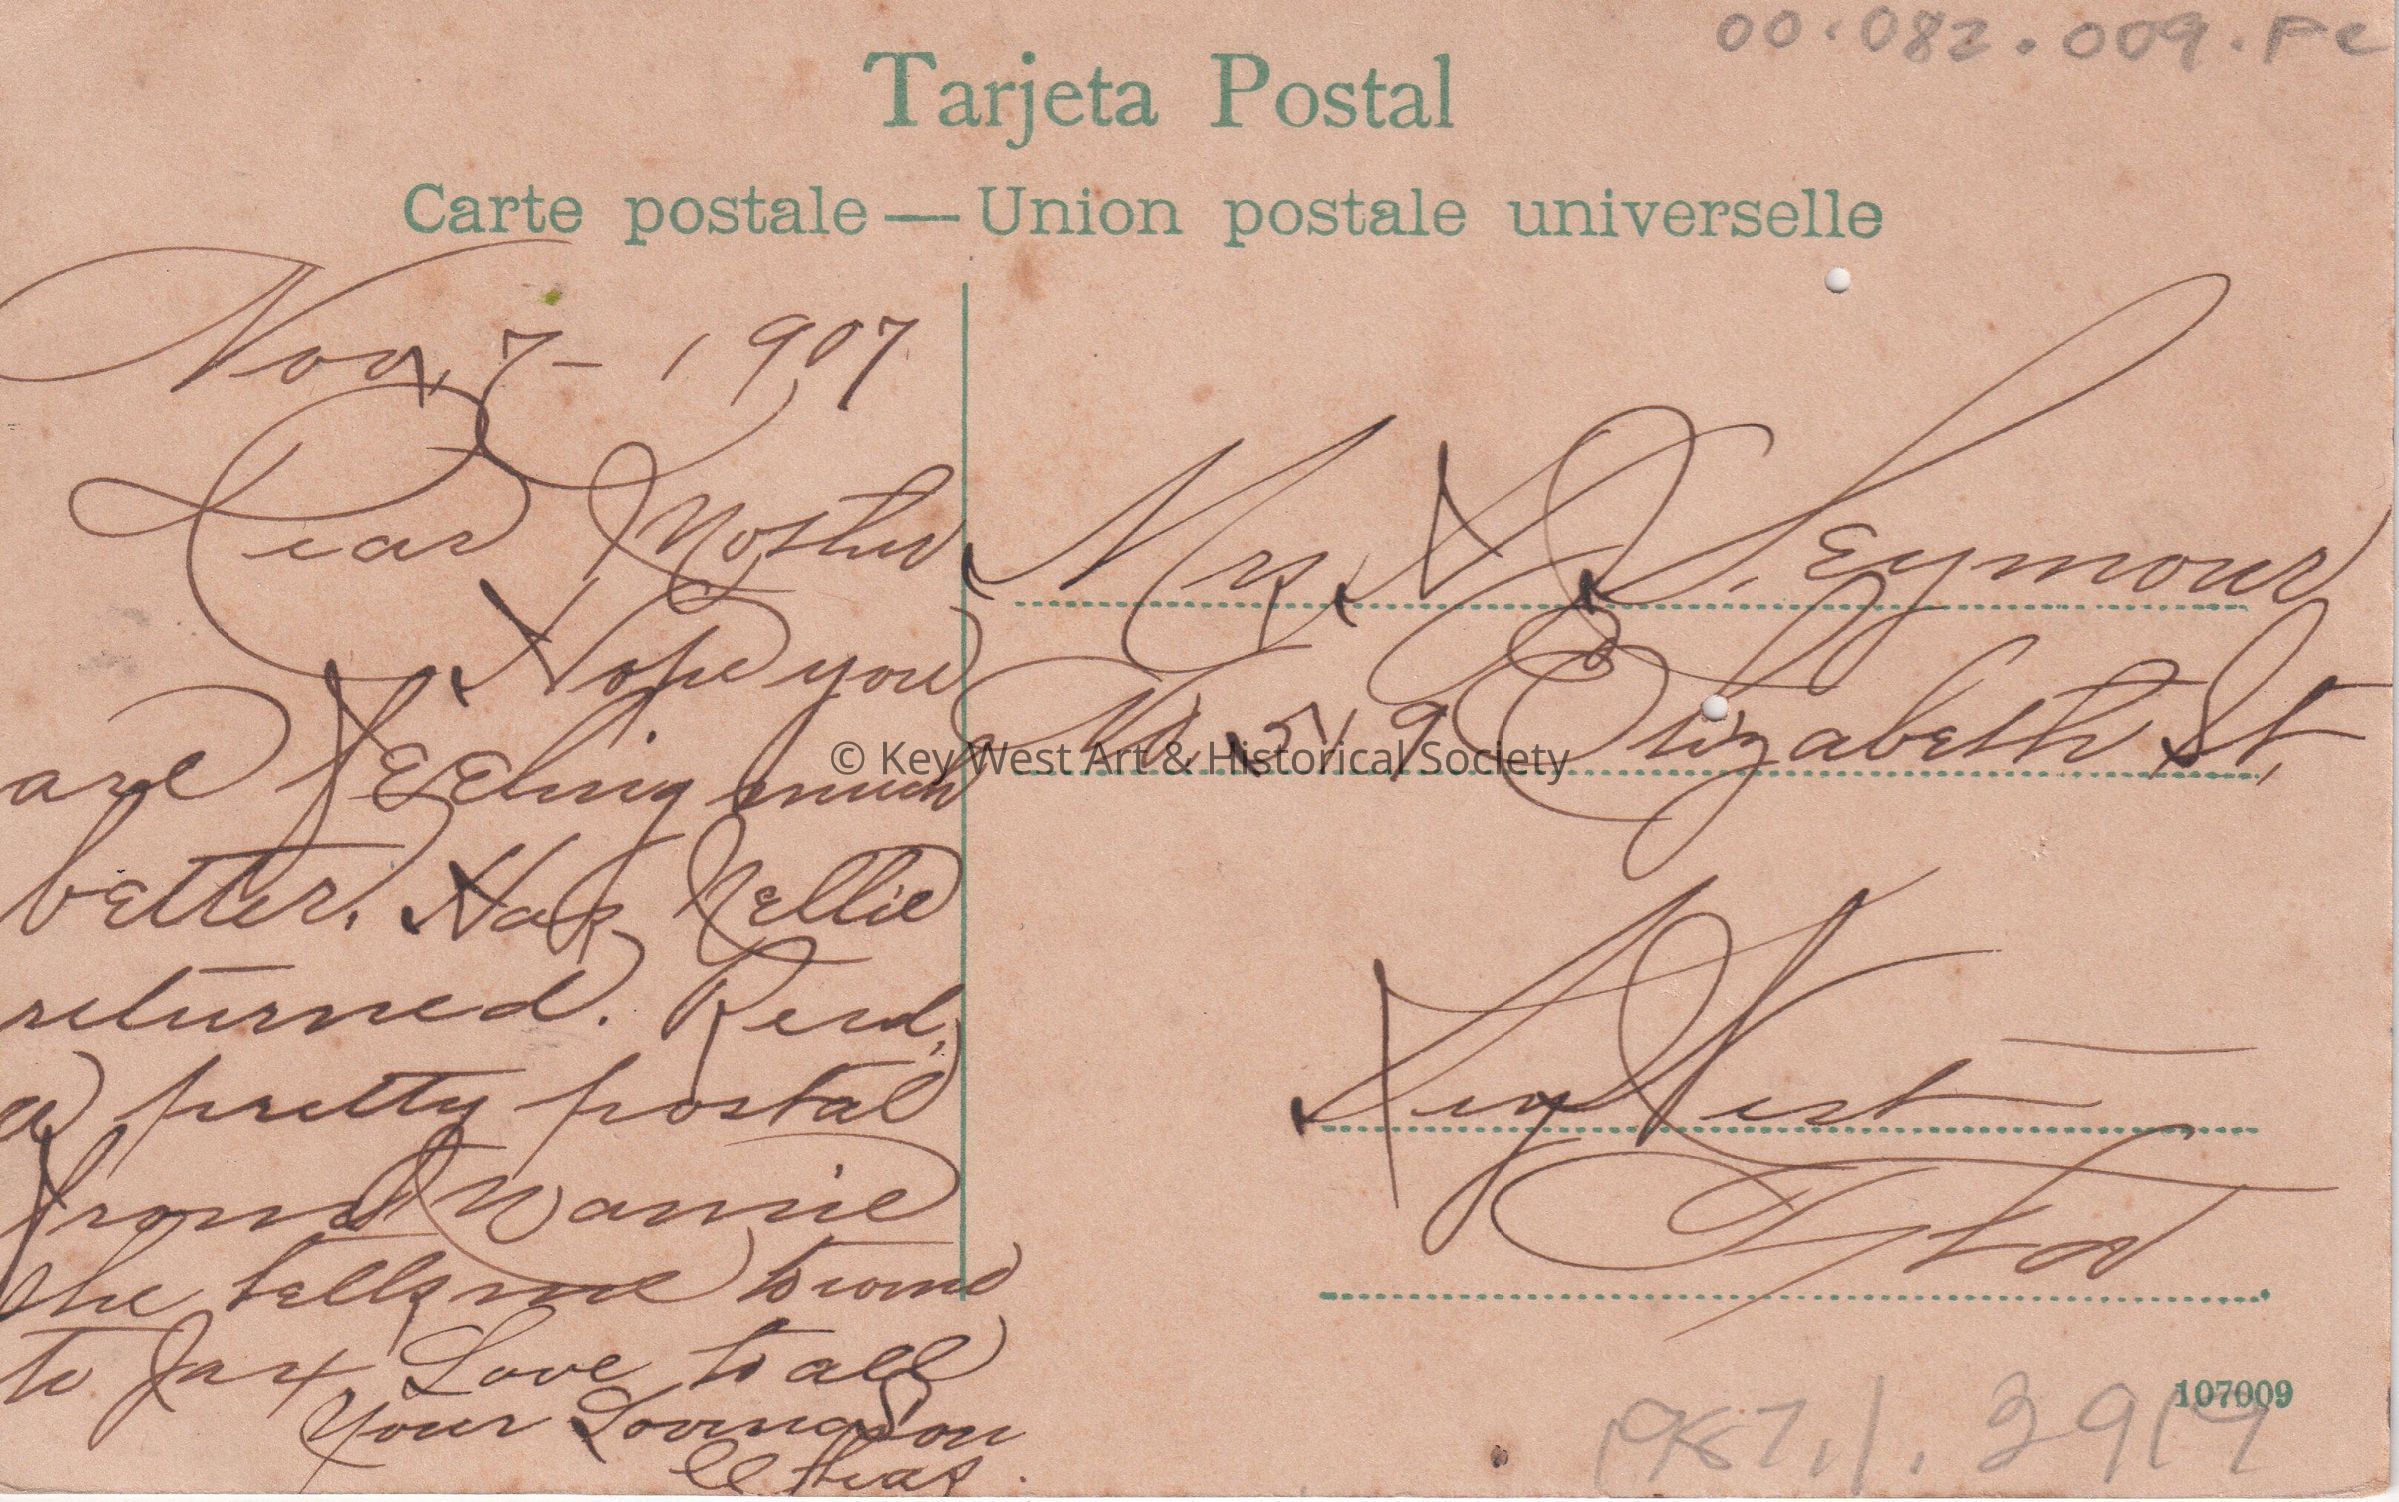 00.082.009.PC
Tarjeta Postal
Carte postale — Union postale universelle
Nov, 7 - 1907
Dear Mother
Hope you
are feeling much
better. Has Nellie
returned. Recd,
a pretty postal
from Nannie
she tells me to come
to Jax, Love to all
Your Loving Son
Mrs, Seymour
No, 519 Elizabeth St,
Key West
Fla
© Key West Art & Historical Society
107009
1987.1.2919